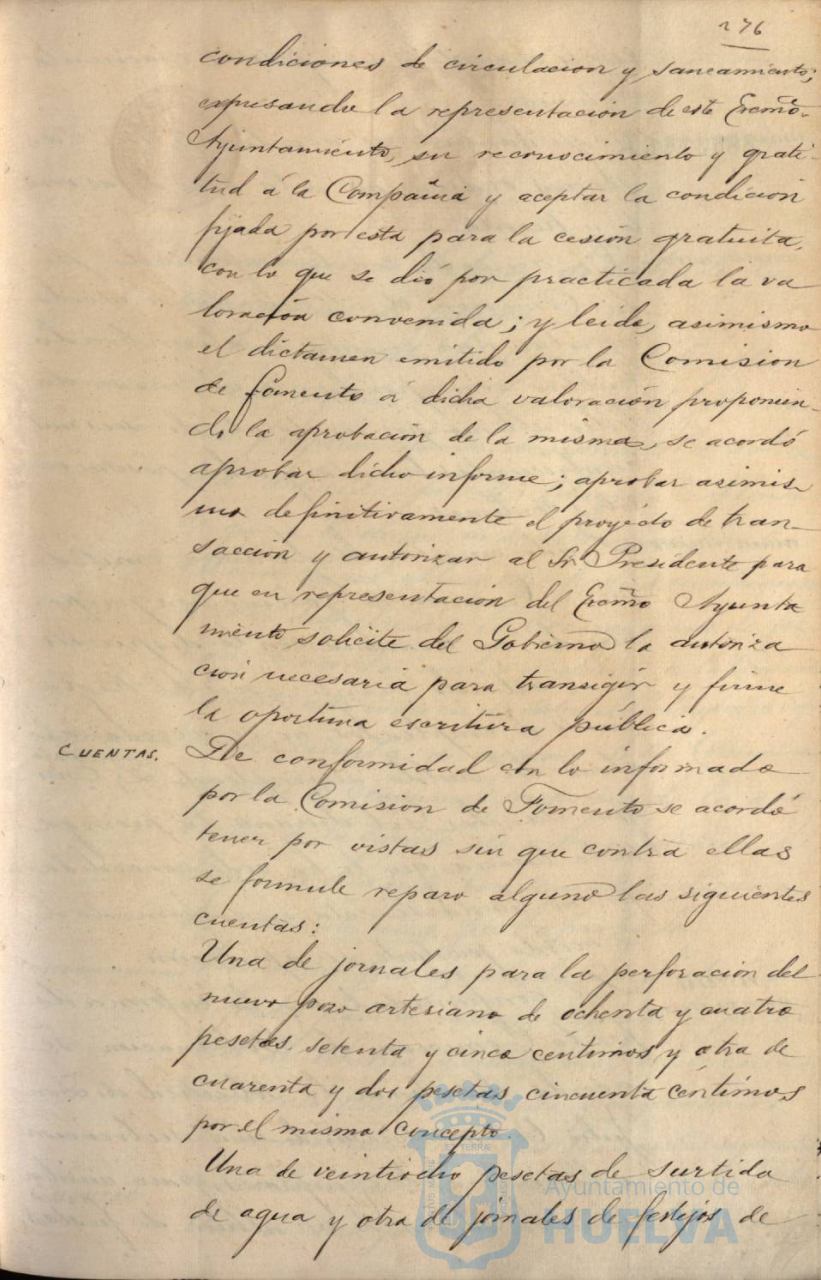 276
condiciones de circulacion y saneamiento,
expresando la representación de este Excmo.
Ayuntamiento, su reconocimiento y grati-
tud á la Compañia y aceptar la condición
fijada por esta para la cesión gratuita,
con lo que se dió por practicada la va
loración convenida; y leido, asimismo
el dictamen emitido por la Comision
de fomento á dicha valoración proponien-
do la aprobación de la misma, se acordó
aprobar dicho informe; aprobar asimis-
mo definitivamente el proyecto de tran-
sacción y autorizar al Sr. Presidente para
que en representación del Excmo Ayunta
miento solicite del Gobierno la autoriza
ción necesaria para transigir y firme
la oportuna escritura pública.
CUENTAS.
De conformidad con lo informado
por la Comision de Fomento se acordó
tener por vistas sin que contra ellas
se formule reparo alguno las siguientes
cuentas:
Una de jornales para la perforación del
nuevo pozo artesiano de ochenta y cuatro
pesetas, setenta y cinco céntimos y otra de
cuarenta y dos pesetas cincuenta céntimos
por el mismo concepto.
Una de veintiocho pesetas de surtida
de agua y otra de jornales de festejos de
Ayuntamiento de
HUELVA